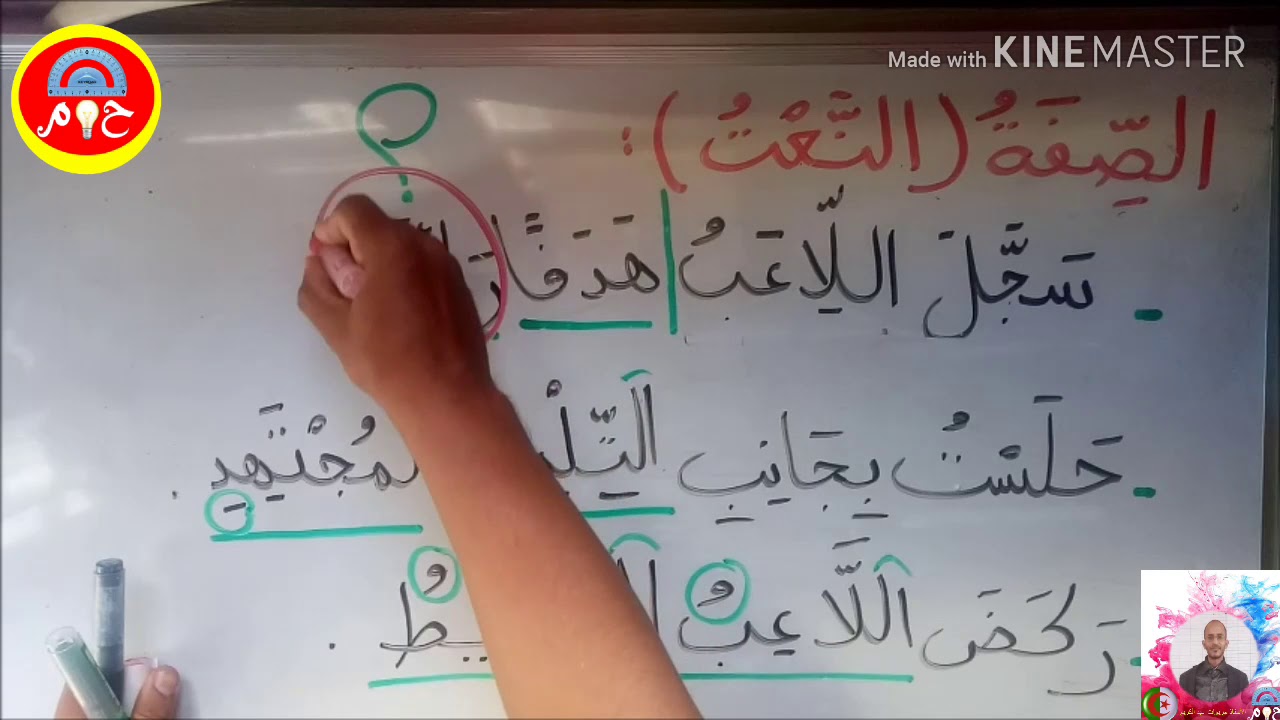 Made with KINEMASTER
حم
الصِّفَةُ (النَّعْتُ) :
؟
- سَجَّلَ اللَّاعِبُ هَدَفًا
- جَلَسْتُ بِجَانِبِ المُجْتَهِدِ .
- رَكَضَ اَللَّاعِبُ .